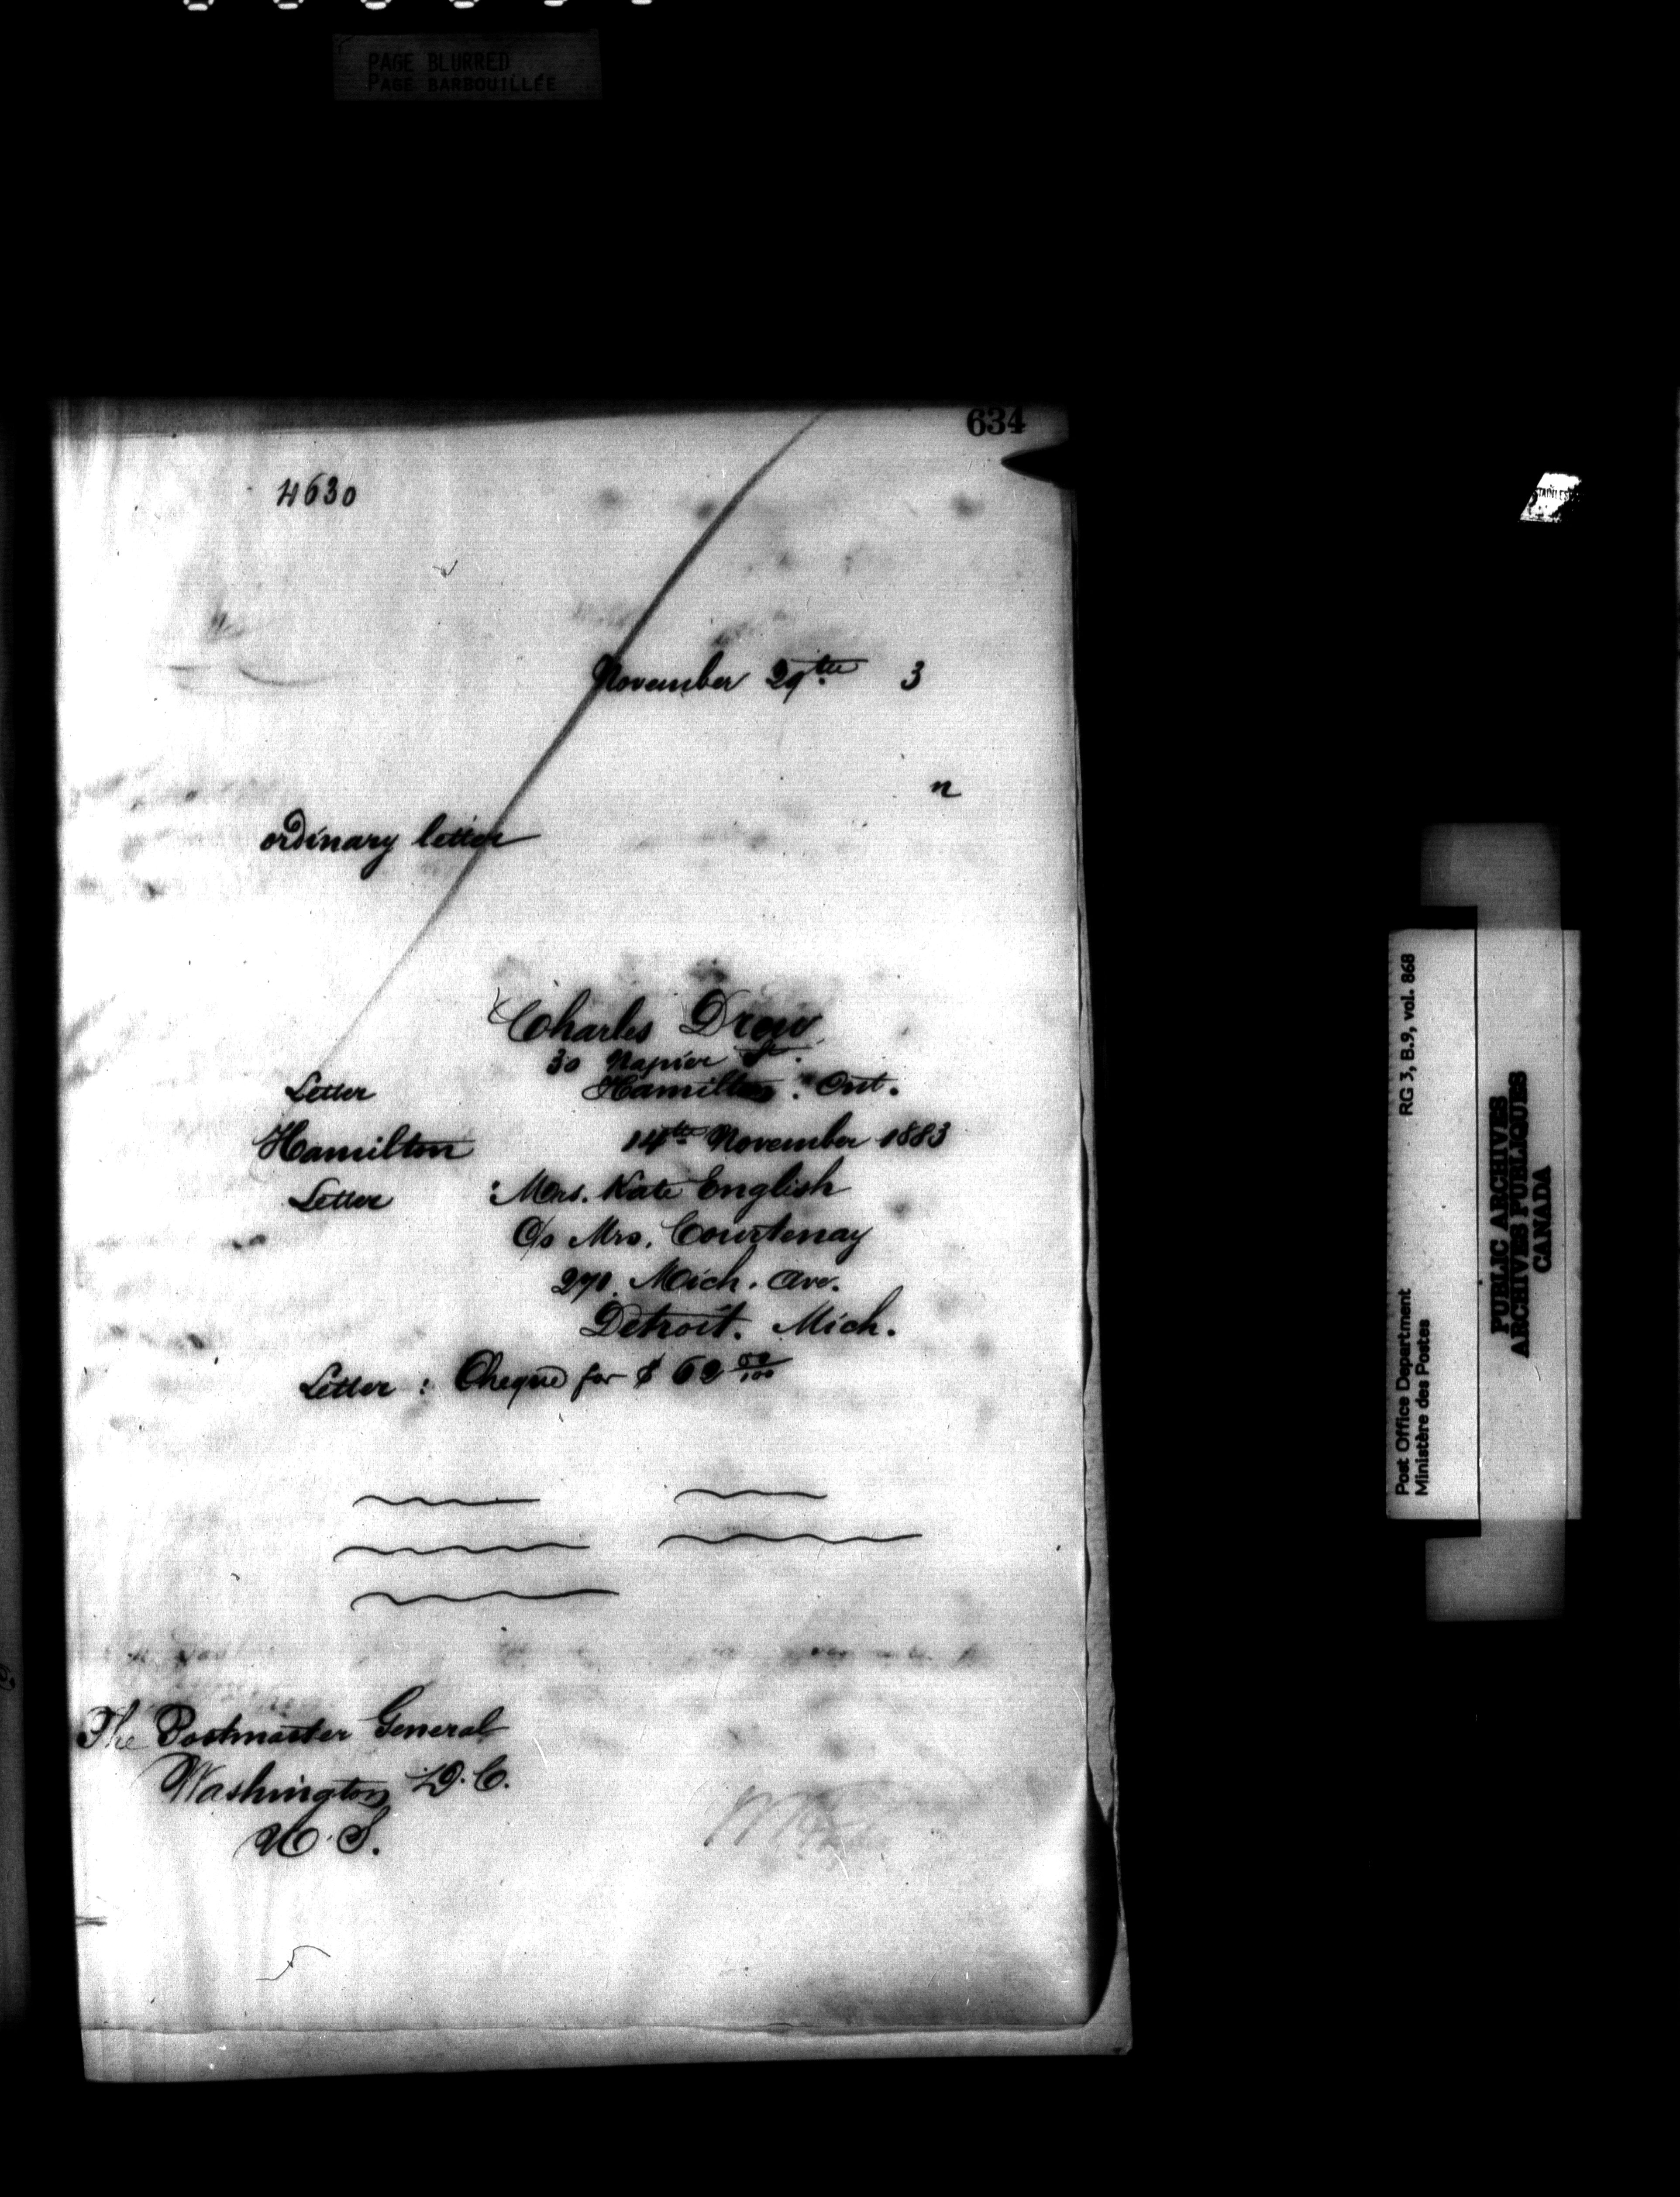 PAGE BLURRED
PAGE BARBOUILLÉE
634
4630
November 29th 3
n
ordinary letter
Charles Drew
30 Napier St.
Letter Hamilton. Ont.
Hamilton 14th November 1883
Letter : Mrs. Kate English
C/o Mrs. Courtenay
270. Mich. Ave.
Detroit. Mich.
Letter : Cheque for $ 62 00/100
The Postmaster General
Washington D.C.
U.S.
Post Office Department RG 3, B.9, vol. 868
Ministère des Postes
PUBLIC ARCHIVES
ARCHIVES PUBLIQUES
CANADA